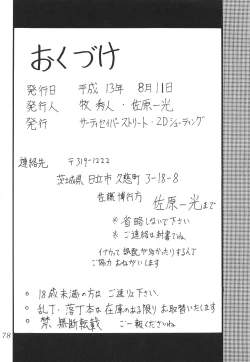 おくづけ
発行日 平成13年 8月11日
発行人 牧 秀人・佐原一光
発行 サーディセイバーストリート・2Dシューティング
連絡先 〒319-1222
茨城県 日立市 久慈町 3-18-8
佐藤 博行方
佐原一光まで
※省略しないで下さい
※ご連絡は封書でね。
ご協力おねがいします
○ 18歳未満の方は ご遠りょ下さい。
○ 乱丁、落丁本は 在庫のある限り お取替いたします
○ 禁 無断転載 ご一報くださいね。
78